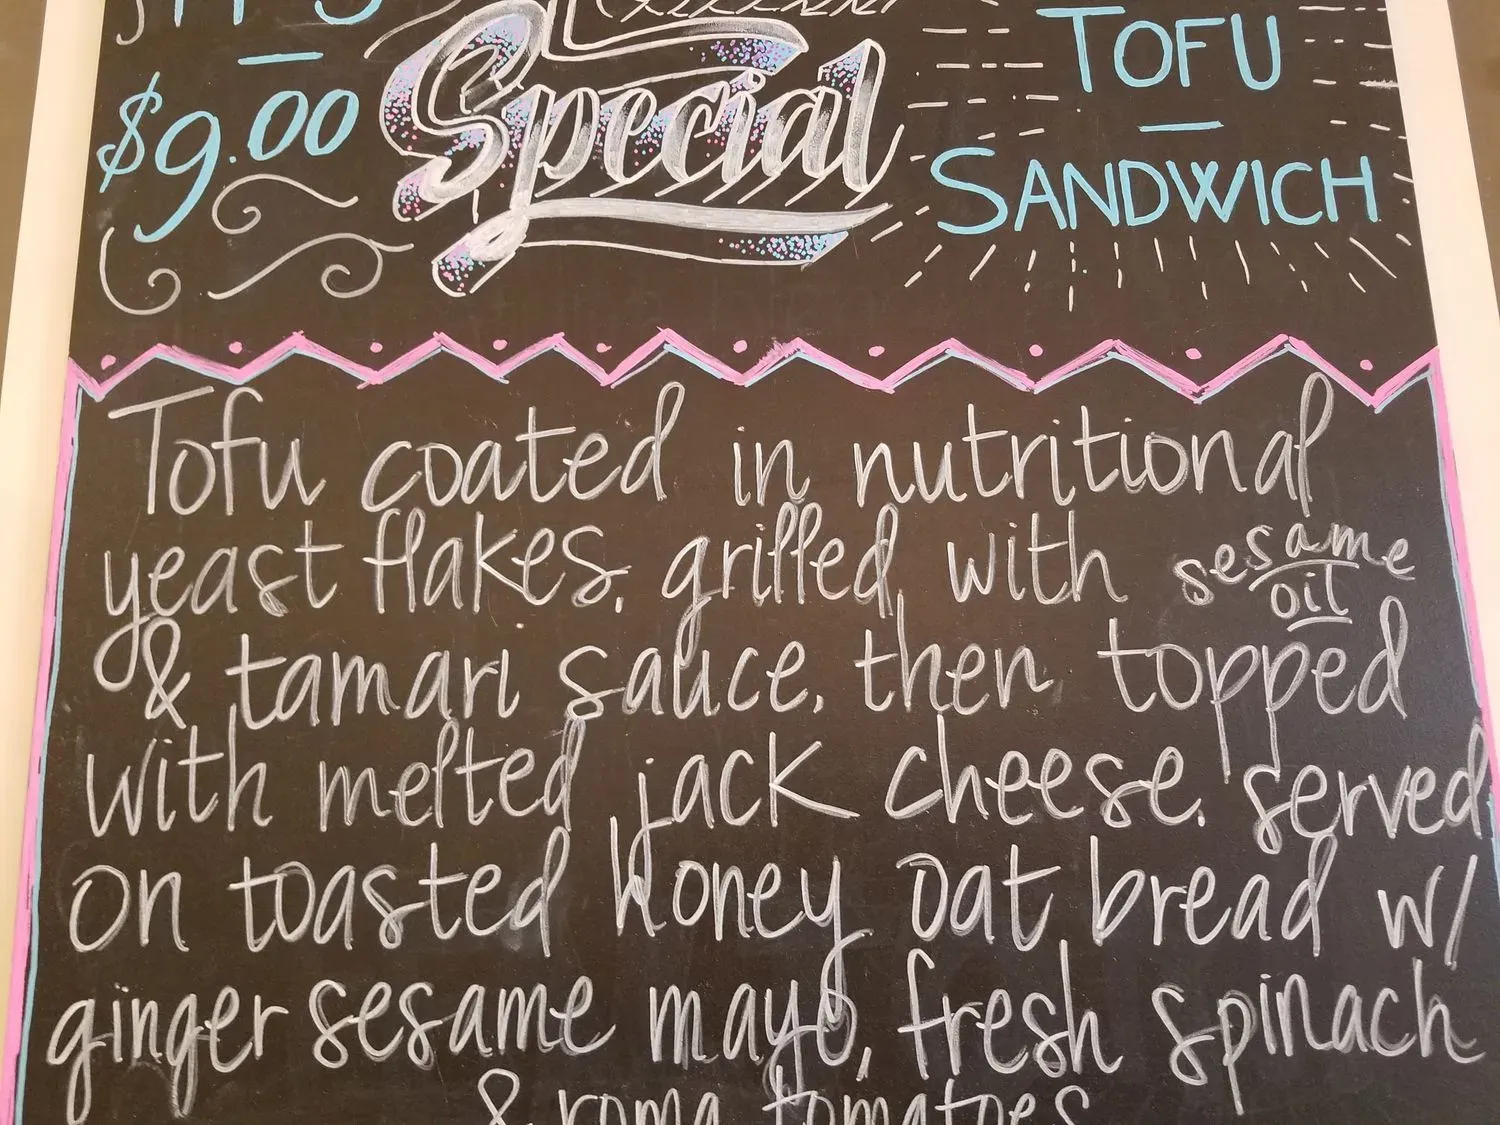 $9.00
Special
TOFU
SANDWICH
Tofu coated in nutritional
yeast flakes, grilled with sesame oil
& tamari sauce, then topped
with melted jack cheese. served
on toasted honey oat bread w/
ginger sesame mayo, fresh spinach
& roma tomatoes